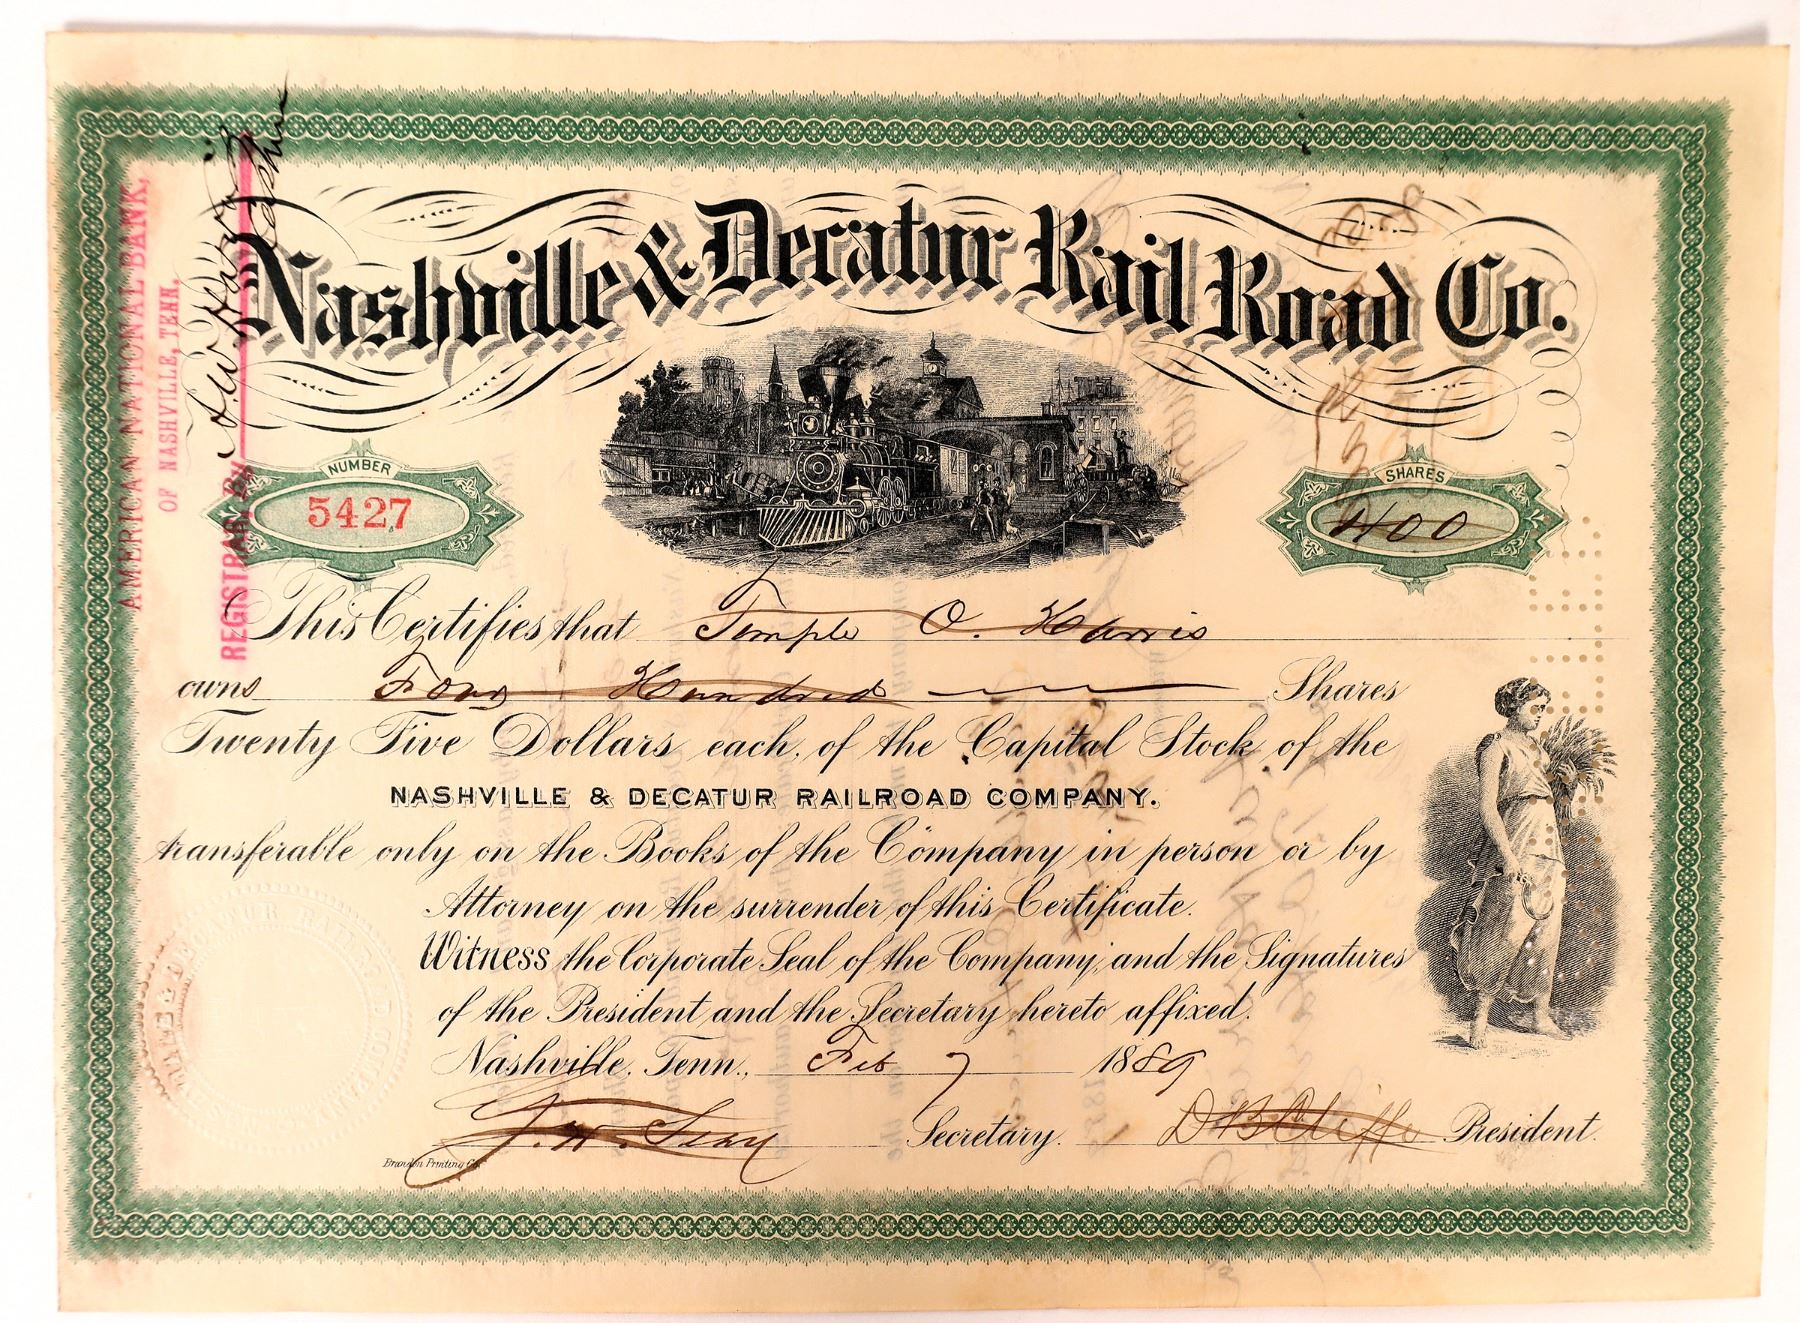 Nashville & Decatur Rail Road Co.
AMERICAN NATIONAL BANK,
OF NASHVILLE, TENN.
REGISTRAR, By
Cashier
NUMBER
5427
SHARES
400
This Certifies that Temple O. Harris
owns Four Hundred Shares
Twenty Five Dollars each, of the Capital Stock of the
NASHVILLE & DECATUR RAILROAD COMPANY.
transferable only on the Books of the Company in person or by
Attorney on the surrender of this Certificate.
Witness the Corporate Seal of the Company, and the Signatures
of the President and the Secretary hereto affixed.
Nashville, Tenn., Feb 7 1889
Secretary. D B Cliffe President.
Brandon Printing Co.
DECATUR RAILROAD COMPANY